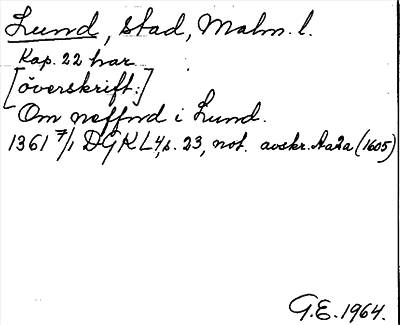 Lund, stad, Malm. l.
Kap. 22 har
[överskrift:]
Om neffnd i Lund.
1361 7/1 DGKL 4, s. 23, not. avskr. Aa2a (1605)
G.E. 1964.